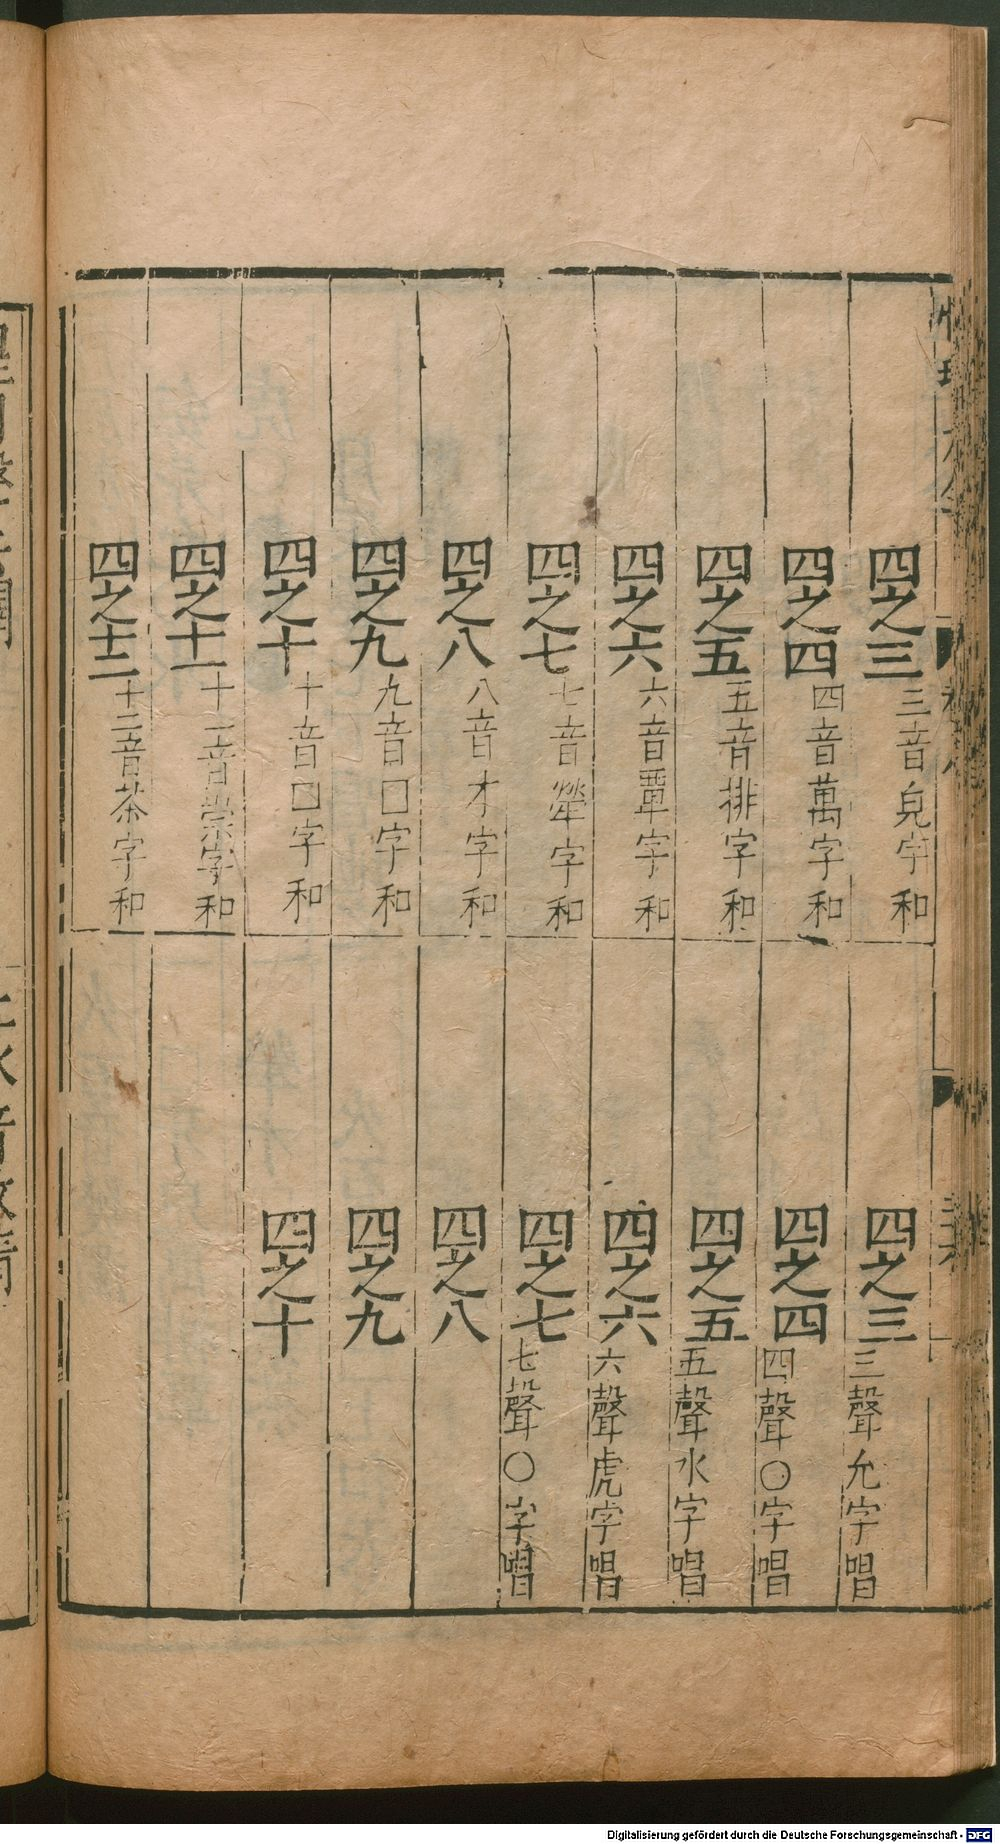 四之三三音皃字和
四之四四音萬字和
四之五五音排字和
四之六六音覃字和
四之七七音犖字和
四之八八音才字和
四之九九音□字和
四之十十音□字和
四之十一十一音崇字和
四之十二十二音茶字和
四之三三聲允字唱
四之四四聲○字唱
四之五五聲水字唱
四之六六聲虎字唱
四之七七聲○字唱
四之八
四之九
四之十
Digitalisierung gefördert durch die Deutsche Forschungsgemeinschaft - DFG